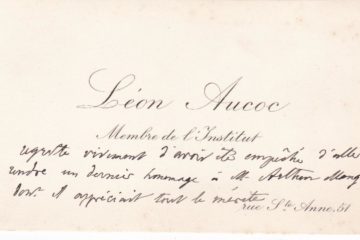 Léon Aucoc
Membre de l'Institut
regrette vivement d'avoir été empêché d'aller
rendre un dernier hommage à M. Arthur Mang
dont il appréciait tout le mérite
rue Ste Anne, 51